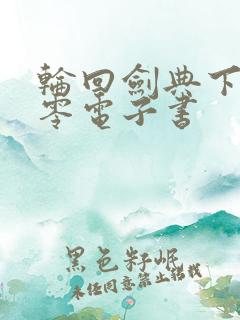 輪回劍典下
零電子書
黑色籽岷
未经同意禁止搭载